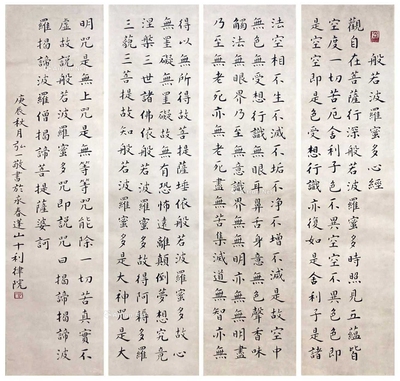 般若波羅蜜多心經
觀自在菩薩行深般若波羅蜜多時照見五蘊皆
空度一切苦厄舍利子色不異空空不異色色即
是空空即是色受想行識亦復如是舍利子是諸
法空相不生不滅不垢不淨不增不減是故空中
無色無受想行識無眼耳鼻舌身意無色聲香味
觸法無眼界乃至無意識界無無明亦無無明盡
乃至無老死亦無老死盡無苦集滅道無智亦無
得以無所得故菩提薩埵依般若波羅蜜多故心
無罣礙無罣礙故無有恐怖遠離顛倒夢想究竟
涅槃三世諸佛依般若波羅蜜多故得阿耨多羅
三藐三菩提故知般若波羅蜜多是大神咒是大
明咒是無上咒是無等等咒能除一切苦真實不
虛故說般若波羅蜜多咒即說咒曰揭諦揭諦波
羅揭諦波羅僧揭諦菩提薩婆訶
庚辰秋月弘一敬書於永春蓬山十利律院